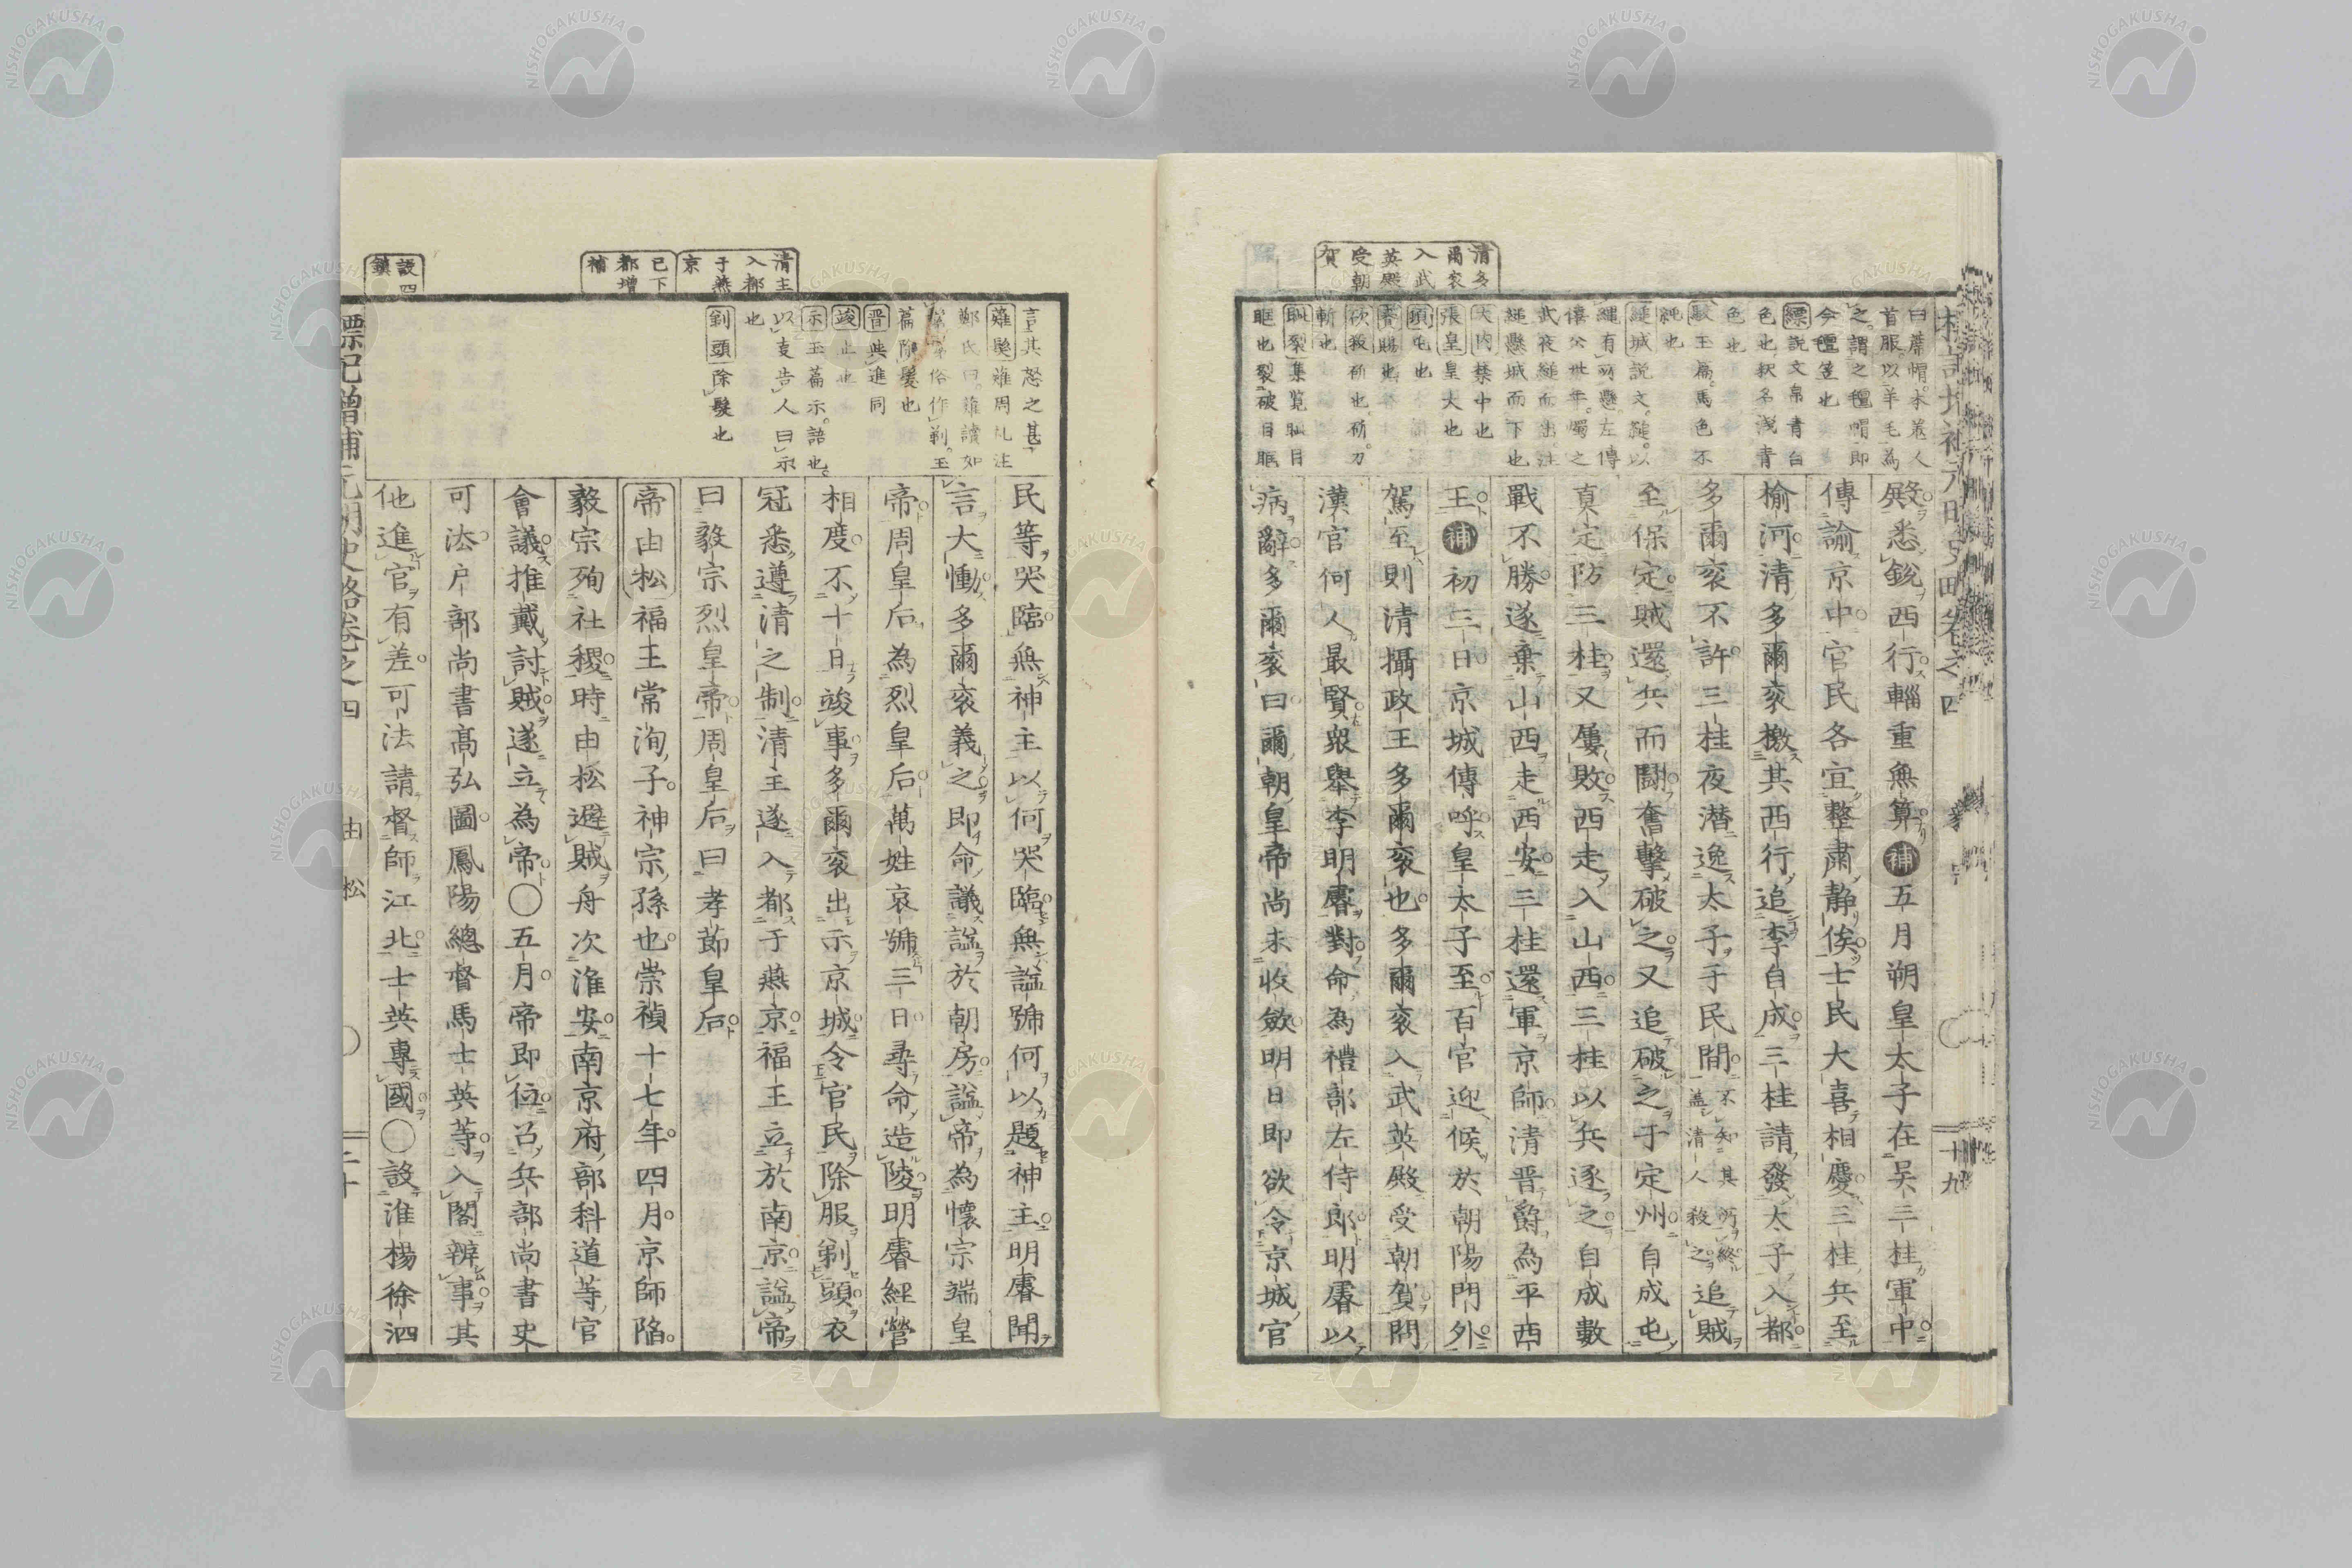 清多
爾袞
入武
英殿
受朝
賀
曰蓆帽本羗人
首服以羊毛為
之謂之氊帽即
今氊笠也
縹説文帛青白
色也釈名浅青
色也
駁玉篇馬色不
純也
縋城説文縋以
繩有所懸左傳
僖公卅年燭之
武夜縋而出注
縋懸城而下也
大内禁中也
張皇皇大也
頃屯也
賚賜也
砍殺砍也斫刀
斬也
眶裂集覧眶目
眶也裂破目眶
殿悉鋭西行輜重無算補五月朔皇太子在吴三桂軍中
傳諭京中官民各宜整肅静俟士民大喜相慶三桂兵至
榆河清多爾衮檄其西行追李自成三桂請發太子入都
多爾衮不許三桂夜潜逸太子于民間不知其所終蓋清人殺之追賊
至保定賊還兵而鬪奮擊破之又追破之于定州自成屯
真定防三桂又屢敗西走入山西三桂以兵逐之自成數
戰不勝遂棄山西走西安三桂還軍京師清晋爵為平西
王補初三日京城傳呼皇太子至百官迎候於朝陽門外
駕至則清攝政王多爾衮也多爾衮入武英殿受朝賀問
漢官何人最賢衆舉李明睿對命為禮部左侍郎明睿以
病辭多爾衮曰爾朝皇帝尚未收斂明日即欲令京城官
十九
清主
入都
于燕
京
已下
都增
補
設四
鎮
言其怒之甚
薙髮薙周礼注
鄭氏曰薙讀如
俗作剃玉
篇除髮也
晋典進同
竣止也
示玉篇示語也
以支告人曰示
也
剃頭除髮也
民等哭臨無神主以何哭臨無謚號何以題神主明睿聞
言大慟多爾衮義之即命議謚於朝房謚帝為懷宗端皇
帝周皇后為烈皇后萬姓哀號三日尋命造陵明睿經營
相度不十日竣事多爾衮出示京城令官民除服剃頭衣
冠悉遵清之制清主遂入都于燕京福王立於南京謚帝
曰毅宗烈皇帝周皇后曰孝莭皇后
帝由松福王常洵子神宗孫也崇禎十七年四月京師陥
毅宗殉社稷時由松避賊舟次淮安南京府部科道等官
會議推戴討賊遂立為帝〇五月帝即位召兵部尚書史
可法戶部尚書髙弘圖鳳陽總督馬士英等入閣辨事其
他進官有差可法請督師江北士英專國〇設淮楊徐泗
標記增補元明史略卷之四
由松
二十